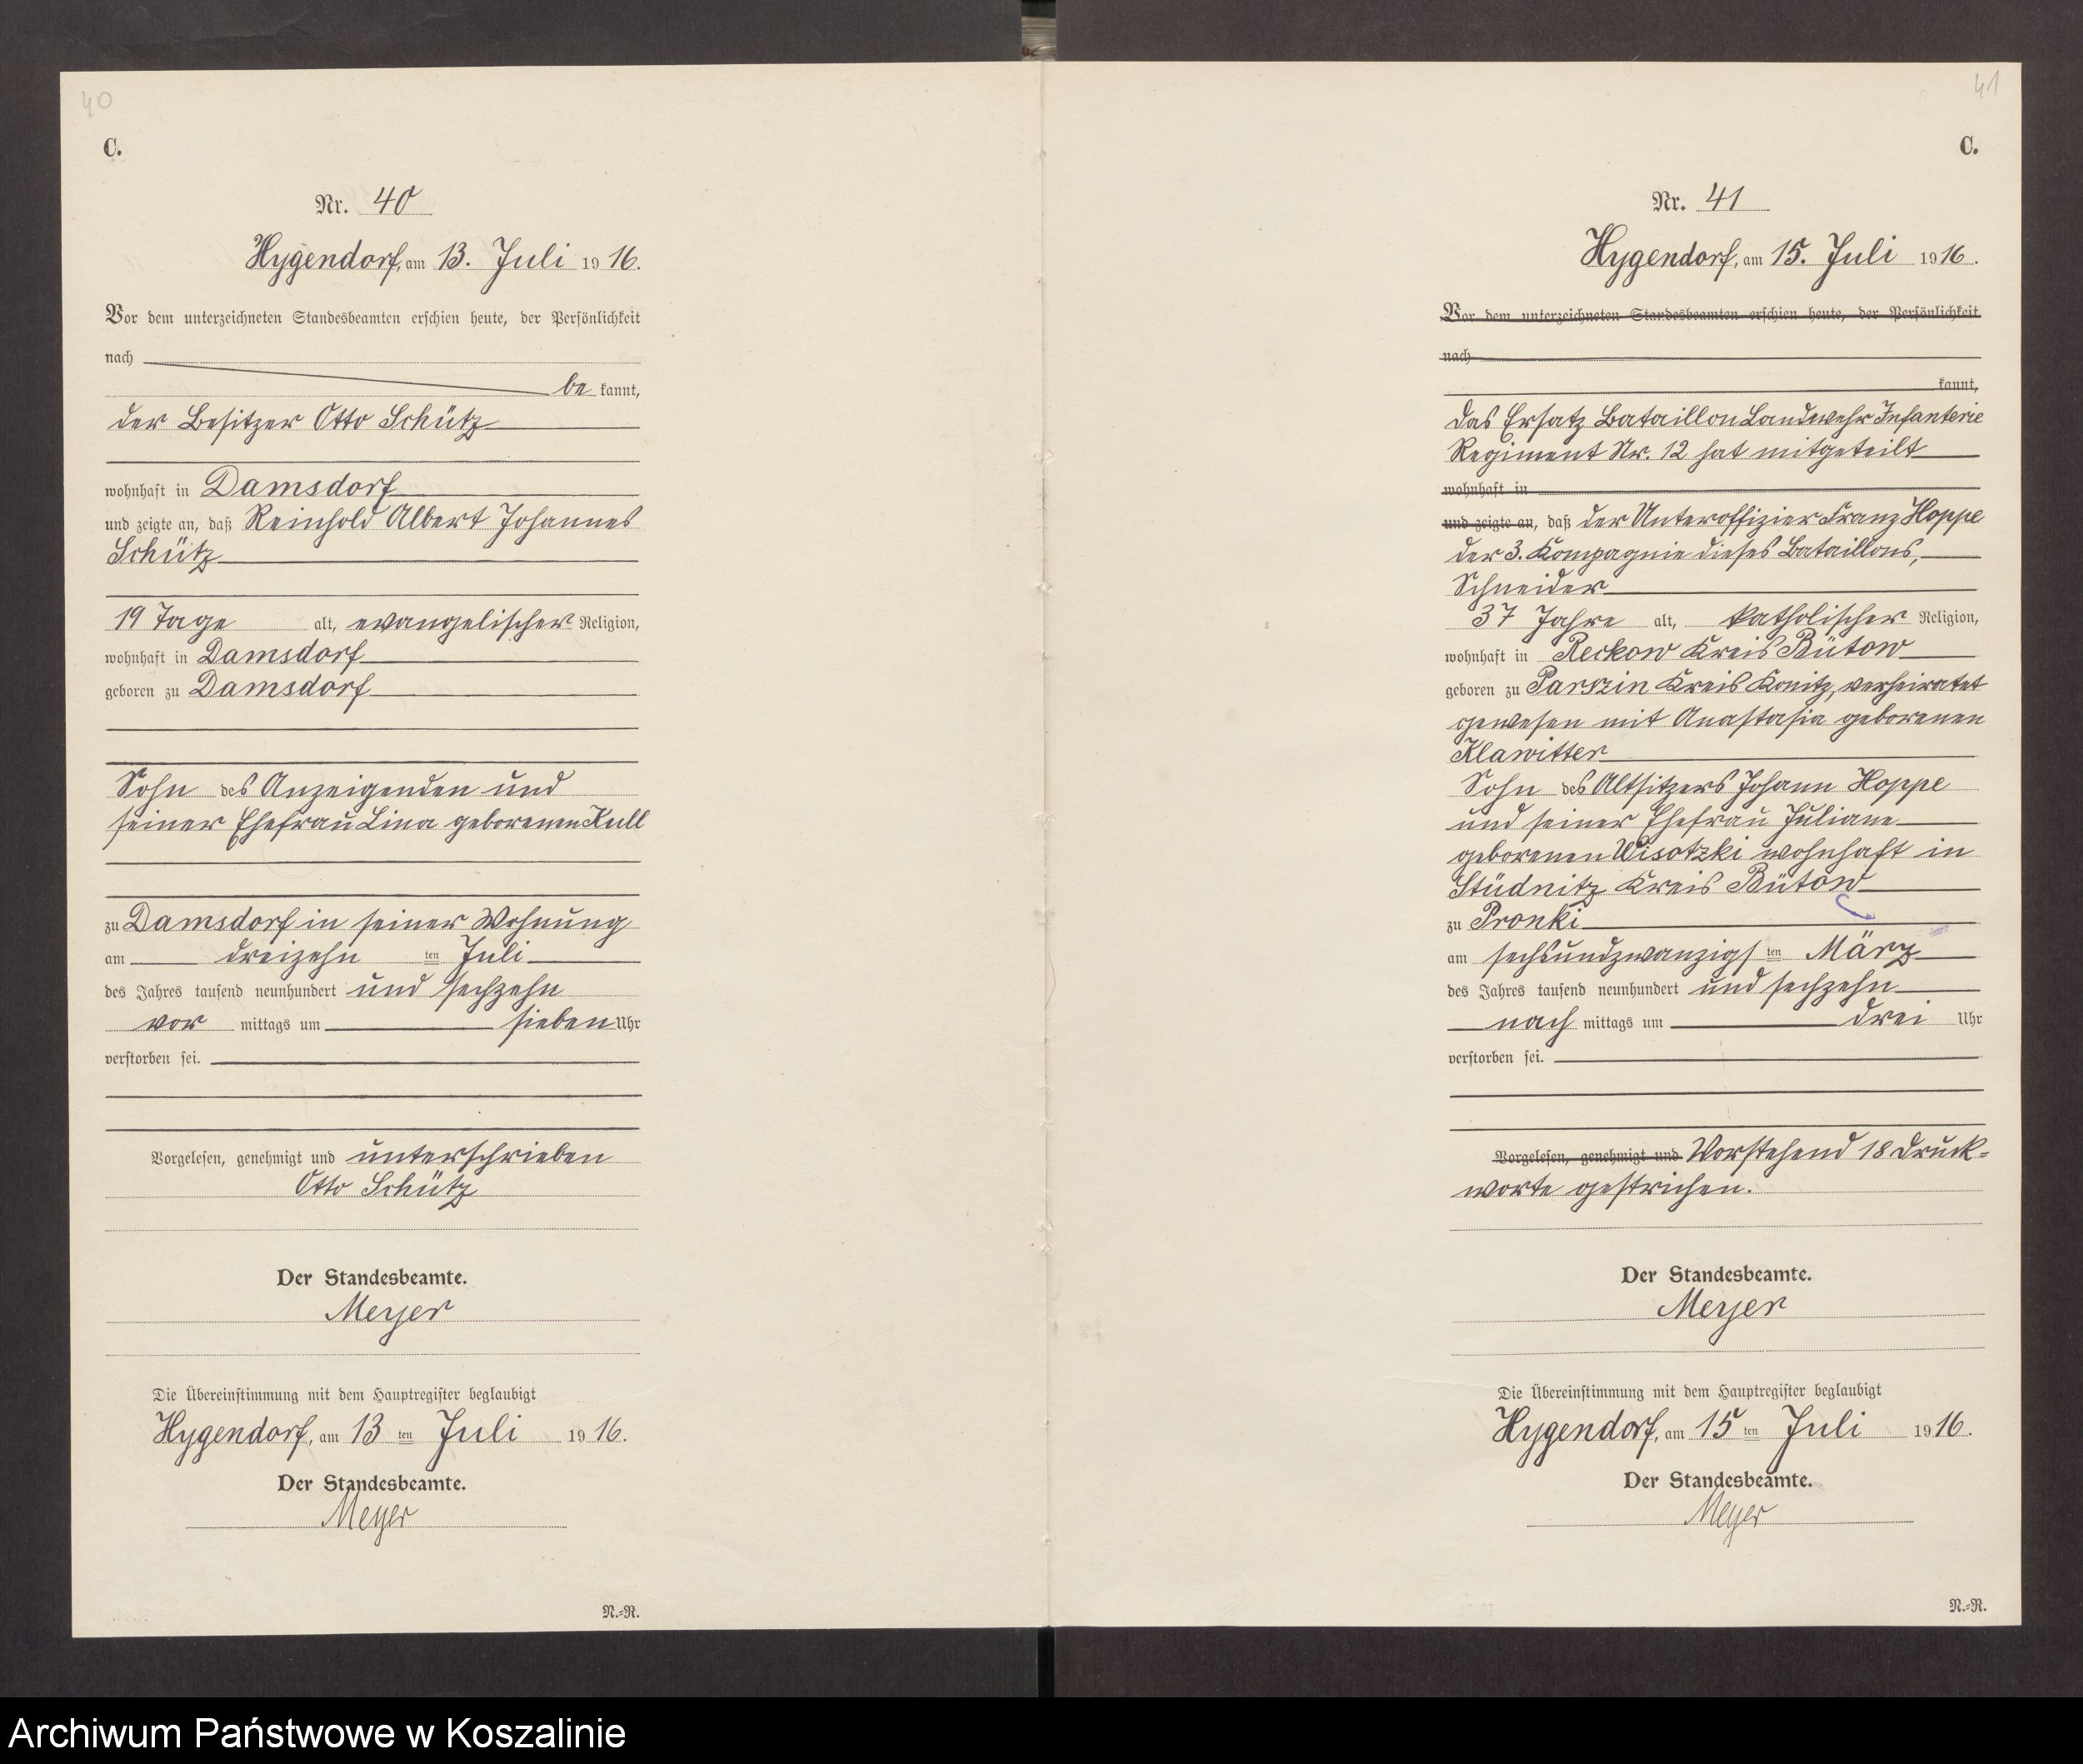 40
C.
Nr. 40
Hygendorf, am 13. Juli 1916.
Vor dem unterzeichneten Standesbeamten erschien heute, der Persönlichkeit
nach
be kannt,
der Besitzer Otto Schütz
wohnhaft in Damsdorf
und zeigte an, daß Reinhold Albert Johannes
Schütz
19 Tage alt, evangelischer Religion,
wohnhaft in Damsdorf
geboren zu Damsdorf
Sohn des Anzeigenden und
seiner Ehefrau Lina geborenen Kull
zu Damsdorf in seiner Wohnung
am dreizehn ten Juli
des Jahres tausend neunhundert und sechzehn
vor mittags um sieben Uhr
verstorben sei.
Vorgelesen, genehmigt und unterschrieben
Otto Schütz
Der Standesbeamte.
Meyer
Die Übereinstimmung mit dem Hauptregister beglaubigt
Hygendorf, am 13 ten Juli 1916.
Der Standesbeamte.
Meyer
N.-R.
41
C.
Nr. 41
Hygendorf, am 15. Juli 1916.
Vor dem unterzeichneten Standesbeamten erschien heute, der Persönlichkeit
nach
kannt,
Das Ersatz Bataillon Landwehr Infanterie
Regiment Nr. 12 hat mitgeteilt
wohnhaft in
und zeigte an, daß der Unteroffizier Franz Hoppe
der 3. Kompagnie dieses Bataillons,
Schneider
37 Jahre alt, katholischer Religion,
wohnhaft in Reckow Kreis Bütow
geboren zu Parszin Kreis Konitz, verheiratet
gewesen mit Anastasia geborenen
Klawitter
Sohn des Altsitzers Johann Hoppe
und seiner Ehefrau Juliane
geborenen Wisotzki wohnhaft in
Stüdnitz Kreis Bütow
zu Pronki
am sechsundzwanzigs ten März
des Jahres tausend neunhundert und sechzehn
nach mittags um drei Uhr
verstorben sei.
Vorgelesen, genehmigt und Vorstehend 18 Druck-
worte gestrichen.
Der Standesbeamte.
Meyer
Die Übereinstimmung mit dem Hauptregister beglaubigt
Hygendorf, am 15 ten Juli 1916.
Der Standesbeamte.
Meyer
N.-R.
Archiwum Państwowe w Koszalinie